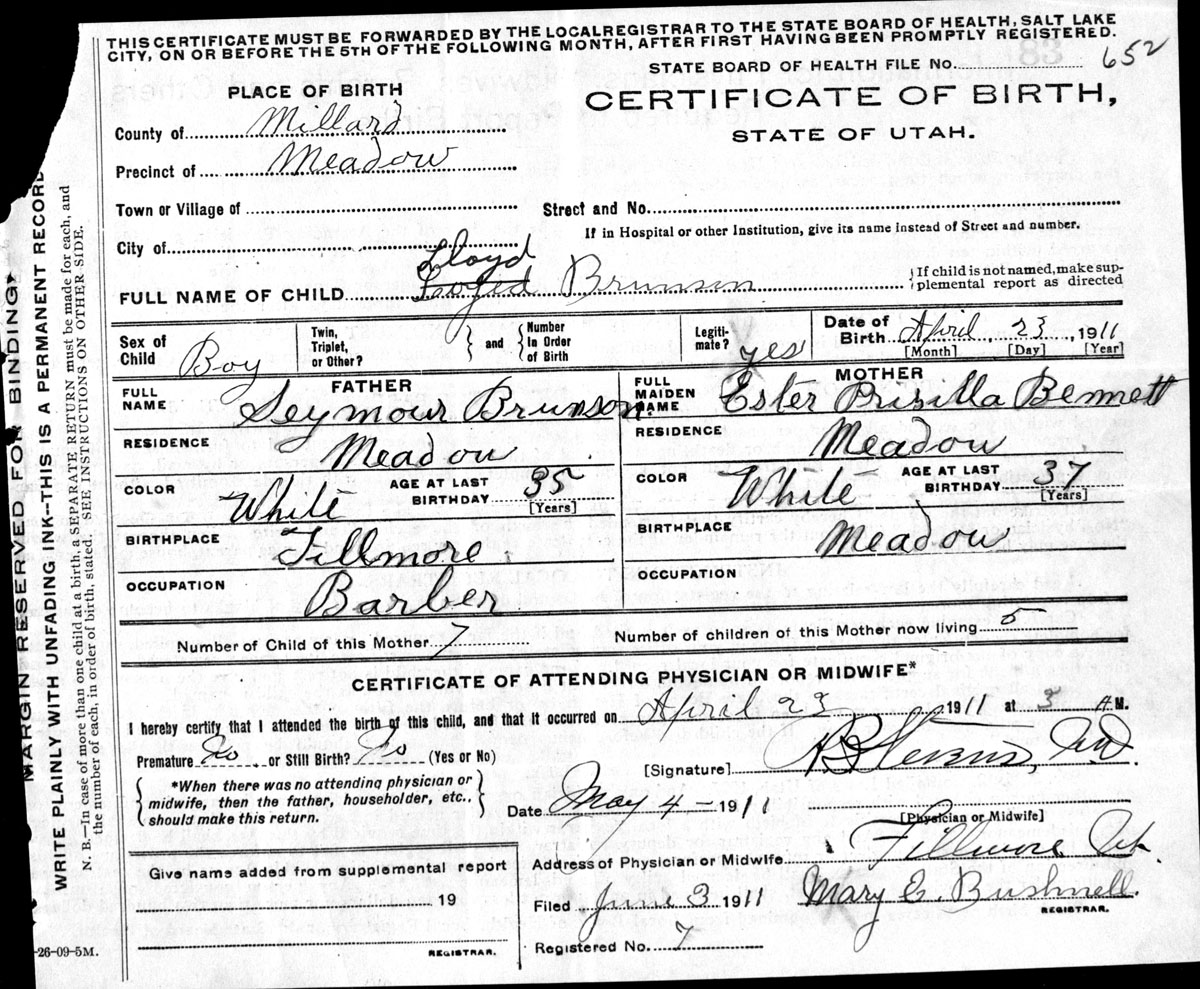 THIS CERTIFICATE MUST BE FORWARDED BY THE LOCALREGISTRAR TO THE STATE BOARD OF HEALTH, SALT LAKE
CITY, ON OR BEFORE THE 5TH OF THE FOLLOWING MONTH, AFTER FIRST HAVING BEEN PROMPTLY REGISTERED.
STATE BOARD OF HEALTH FILE No. 652
PLACE OF BIRTH
CERTIFICATE OF BIRTH,
STATE OF UTAH.
County of Millard
Precinct of Meadow
Town or Village of
Street and No.
If in Hospital or other Institution, give its name instead of Street and number.
City of
Lloyd
FULL NAME OF CHILD Brunson
{If child is not named, make supplemental report as directed
Sex of Child Boy
Twin, Triplet, or Other?
and
Number In Order of Birth
Legitimate? yes
Date of Birth April 23, 1911
[Month] [Day] [Year]
FATHER
FULL NAME Seymour Brunson.
MOTHER
FULL MAIDEN NAME Ester Prisilla Bennett
RESIDENCE Meadow
RESIDENCE Meadow
COLOR White AGE AT LAST BIRTHDAY 35 [Years]
COLOR White AGE AT LAST BIRTHDAY 37 [Years]
BIRTHPLACE Fillmore
BIRTHPLACE Meadow
OCCUPATION Barber
OCCUPATION
Number of Child of this Mother 7
Number of children of this Mother now living 5
CERTIFICATE OF ATTENDING PHYSICIAN OR MIDWIFE*
I hereby certify that I attended the birth of this child, and that it occurred on April 23 1911 at 3 A.M.
Premature No or Still Birth? No (Yes or No)
[Signature]
*When there was no attending physician or
midwife, then the father, householder, etc.,
should make this return.
Date May 4 - 1911
[Physician or Midwife]
Address of Physician or Midwife Fillmore Ut.
Give name added from supplemental report
19
REGISTRAR.
Filed June 3 1911 Mary E. Bushnell.
REGISTRAR.
Registered No. 7
-26-09-5M.
MARGIN RESERVED FOR BINDING
WRITE PLAINLY WITH UNFADING INK--THIS IS A PERMANENT RECORD
N. B.—In case of more than one child at a birth, a SEPARATE RETURN must be made for each, and
the number of each, in order of birth, stated. SEE INSTRUCTIONS ON OTHER SIDE.